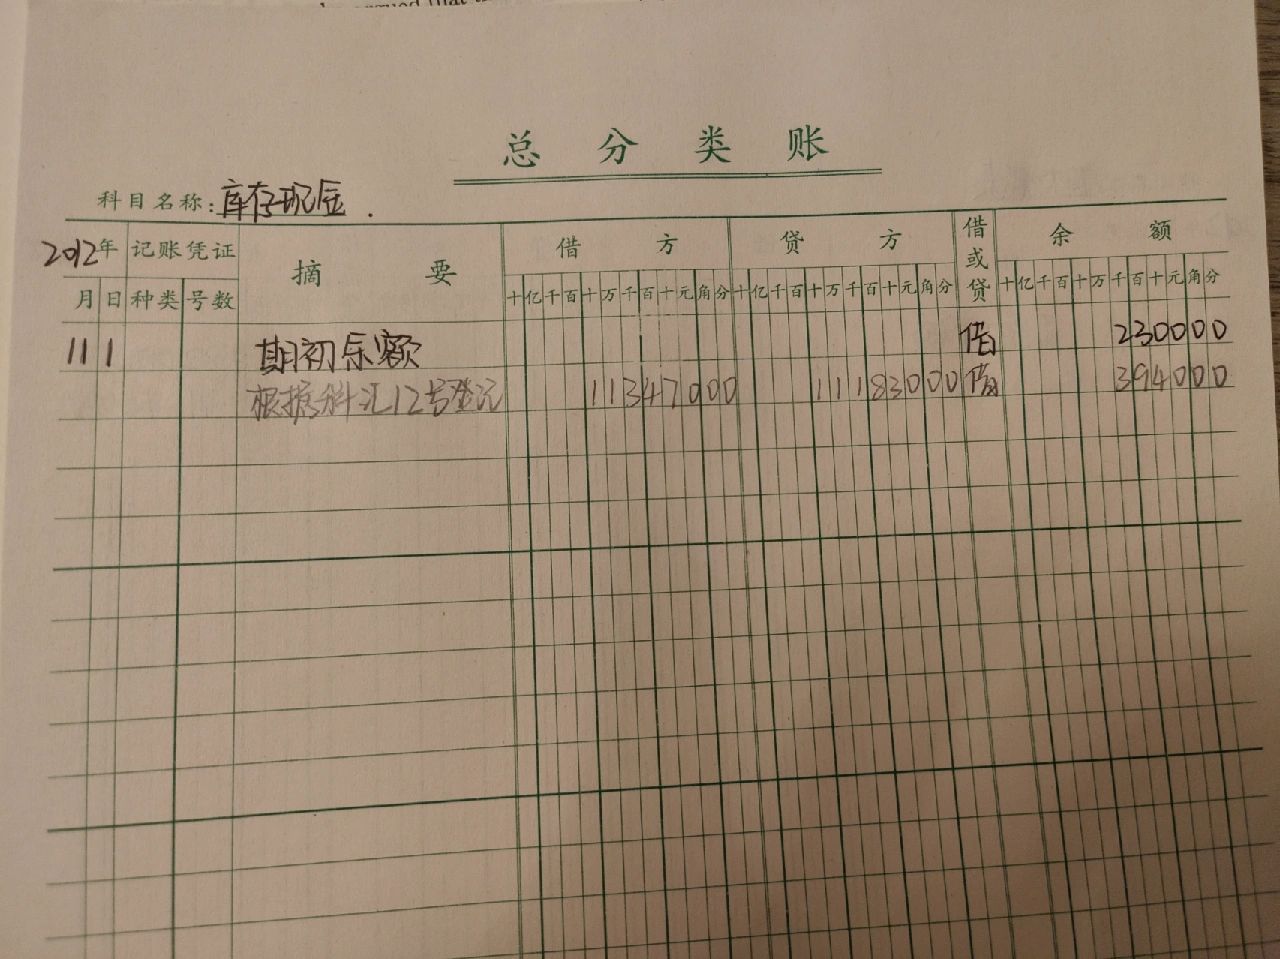 总分类账
科目名称:库存现金.
2012年 记账凭证 摘要 借方 贷方 借或贷 余额
月 日 种类 号数 十亿千百十万千百十元角分 十亿千百十万千百十元角分 十亿千百十万千百十元角分
11 1 期初余额 借 230000
根据科汇12号登记 11347000 11183000 借 394000